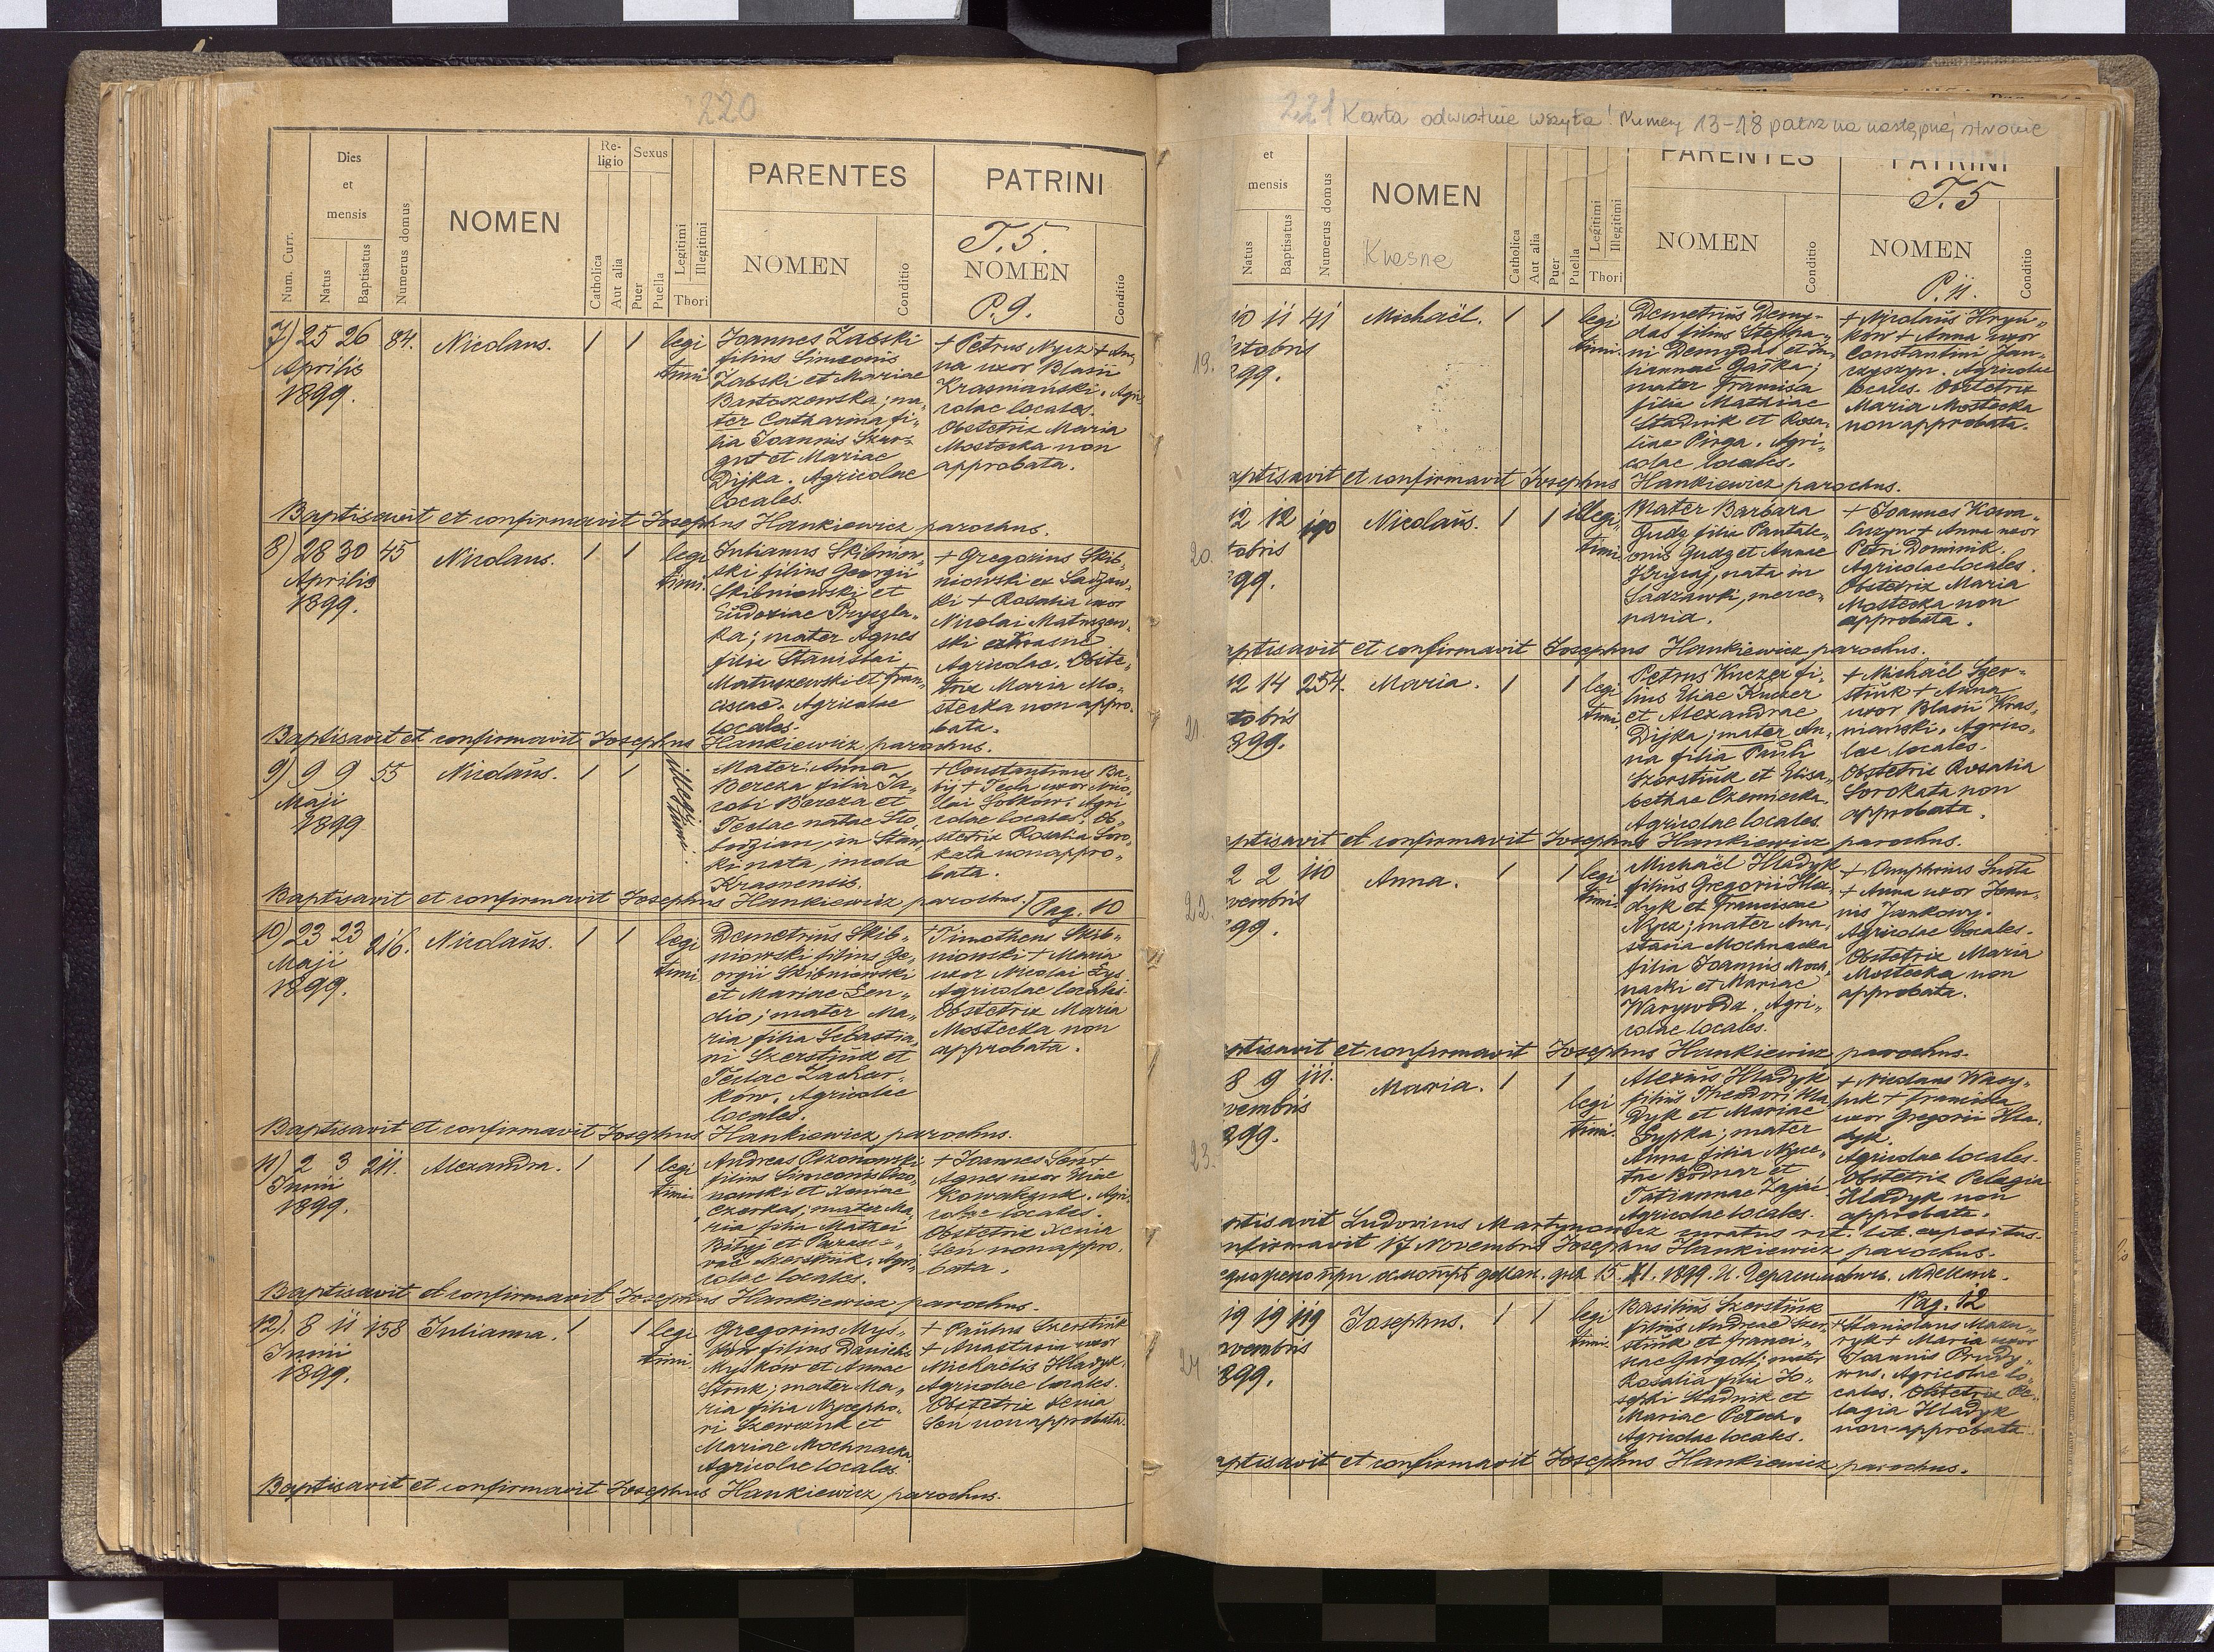 220
Num. Curr.
Dies
et
mensis
Natus
Baptisatus
Numerus domus
NOMEN
Re-
ligio
Catholica
Aut alia
Sexus
Puer
Puella
Legitimi
Illegitimi
Thori
PARENTES
NOMEN
Conditio
PATRINI
T. 5.
NOMEN
P. 9.
Conditio
7) 25 26 84. Nicolaus. 1 1
Aprilis
1899.
legi
timi
Joannes Zabski
filius Simeonis
Zabski et Mariae
Bartoszewska; ma„
ter Catharina fi„
lia Joannis Skur„
gut et Mariae
Dijka. Agricolae
locales.
+ Petrus Nycz + An„
na uxor Blasii
Krasniański. Agri„
colae locales.
Obstetrix Maria
Mostecka non
approbata.
Baptisavit et confirmavit Josephus Hankiewicz parochus.
8) 28 30 45 Nicolaus. 1 1
Aprilis
1899.
legi
timi.
Julianus Skibniow„
ski filius Georgii
Skibniowski et
Eudoxiae Pryszla„
ka; mater Agnes
filia Stanislai
Matuszewski et Fran„
ciscae. Agricolae
locales.
+ Gregorius Skib„
niowski ex Sadzaw„
ki + Rosalia uxor
Nicolai Matuszew„
ski ex Krasne
Agricolae. Obste„
trix Maria Mo„
stecka non appro„
bata.
Baptisavit et confirmavit Josephus Hankiewicz parochus.
9) 9 9 55 Nicolaŭs. 1 1
Maji
1899
illegi
timi.
Mater: Anna
Bereza filia Ja„
cobi Bereza et
Teclae natae
in Staw„
ki nata, incola
Krasnensis.
+ Constantinus Ba„
bij + Tecla uxor Nico„
lai Agri
colae locales. Ob„
stetrix Rosalia Soro„
kata non appro„
bata.
Baptisavit et confirmavit Josephus Hankiewicz parochus.
Pag. 10
10) 23 23 216. Nicolaŭs. 1 1
Maji
1899.
legi
timi.
Demetriŭs Skib„
niowski filius Ge„
orgii Skibniowski
et Mariae Sen„
dio; mater Ma„
ria filia Sebastia„
ni Szerstiŭk et
Teclae Zachar„
ków. Agricolae
locales.
+ Timotheus Skib„
niowski + Maria
uxor Nicolai Lys
Agricolae locales.
Obstetrix Maria
Mostecka non
approbata.
Baptisavit et confirmavit Josephus Hankiewicz parochus.
11) 2 3 211. Alexandra. 1 1
Junii
1899.
legi
timi.
Andreas
filius Simeonis
nowski et Xeniae
Czerkas; mater Ma„
ria filia Mathei
Bityj et Paras„
Szerstiuk. Agri„
colae locales.
+ Joannes Seń +
Agnes uxor Eliae
Kowalczuk. Agri„
colae locales.
Obstetrix Xenia
Seń non appro„
bata.
Baptisavit et confirmavit Josephus Hankiewicz parochus.
12). 8 11 158 Julianna. 1 1
Junii
1899.
legi
timi.
Gregorius Mys„
ków filius Danielis
Myśków et Annae
Struk; mater Ma„
ria filia Nycepho„
ri Szewczuk et
Mariae Mochnacka.
Agricolae locales.
+ Paulus Szerstiŭk
+ Anastasia uxor
Michaelis Hladyk.
Agricolae locales.
Obstetrix Xenia
Seń non approbata.
Baptisavit et confirmavit Josephus Hankiewicz parochus.
221 Karta odwrotnie wszyta! Numery 13-18 patrz na następnej stronie
et
mensis
Natus
Baptisatus
Numerus domus
NOMEN
Krasne
Catholica
Aut alia
Puer
Puella
Legitimi
Illegitimi
Thori
PARENTES
NOMEN
Conditio
PATRINI
T. 5
NOMEN
P. 11.
Conditio
19.
10 11 41 Michaël. 1 1
ctobris
899.
legi
timi.
Demetriŭs Demy-
das filius Stepha„
ni Demydas et Ju„
liannae Gaśka;
mater Francisca
filia Mathiae
Stadnik et Rosa„
liae Pirga. Agri„
colae locales.
+ Nicolaŭs Hryń„
ków + Anna uxor
Constantini Jan„
czyszyn. Agricolae
locales. Obstetrix
Maria Mostecka
non approbata.
aptisavit et confirmavit Josephus Hankiewicz parochus.
20.
12 12 190 Nicolaŭs. 1 1
tobris
899.
illegi„
timi.
Mater Barbara
Gudz filia Pantale„
onis Gudz et Annae
Hrycaj, nata in
Sadzawki, merce„
naria.
+ Joannes Kowa„
liszyn + Anna uxor
Petri Dominik.
Agricolae locales.
Obstetrix Maria
Mostecka non
approbata.
aptisavit et confirmavit Josephus Hankiewicz parochus.
21.
12 14 254. Maria. 1 1
tobris
899.
legi
timi.
Petrus Kuczer fi„
lius Eliae Kuczer
et Alexandrae
Dijka; mater An„
na filia Pauli
Szerstiŭk et Elisa„
bethae Czerniecka.
Agricolae locales.
+ Michaël Szer„
stiŭk + Anna
uxor Blasii Kras„
niański. Agrico„
lae locales.
Obstetrix Rosalia
Sorokata non
approbata.
aptisavit et confirmavit Josephus Hankiewicz parochus.
22.
2 2 110 Anna. 1 1
vembris
899.
legi
timi.
Michaël Hladyk
filiŭs Gregorii Hla„
dyk et Franciscae
Nycz; mater Ana„
stasia Mochnacka
filia Joannis Moch„
nacki et Mariae
Warywoda. Agri„
colae locales.
+ Onuphrius
+ Anna uxor Joan„
nis Jankowy.
Agricolae locales.
Obstetrix Maria
Mostecka non
approbata.
aptisavit et confirmavit Josephus Hankiewicz parochus.
23.
8 9 111. Maria. 1 1
vembris
899.
legi
timi.
Alexius Hladyk
filiŭs Theodori Hla
dyk et Mariae
Sypka; mater
Anna filia Nyce„
tae Bodnar et
Tatiannae Zajać.
Agricolae locales.
+ Nicolaus Wasy„
luk + Francisca
uxor Gregorii Hla„
dyk.
Agricolae locales.
Obstetrix Pelagia
Hladyk non
approbata.
ptisavit Ludovicus Martynowicz curatus rit. lat. expositus.
nfirmavit 17 Novembris Josephus Hankiewicz parochus.
15. XI. 1899.
Pag. 12
24
19 19 119 Josephus. 1 1
ovembris
899.
legi
timi.
Basiliŭs Szerstiŭk
filiŭs Andreae Szer„
stiŭk et Franci„
scae Gargol; mater
Rosalia filia Jo„
sephi Stadnik et
Mariae Petech.
Agricolae locales.
+ Stanislaus Maku„
ryk + Maria uxor
Joannis Prudy„
wus. Agricolae lo„
cales. Obstetrix Pe„
lagia Hladyk
non approbata
aptisavit et confirmavit Josephus Hankiewicz parochus.